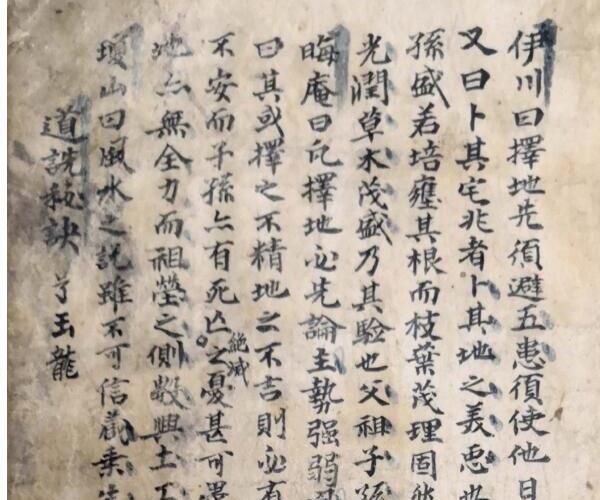 伊川曰擇地先須避五患須使他日
又曰卜其宅兆者卜其地之美悪也
孫盛若培壅其根而枝葉茂理固然
光潤草木茂盛乃其驗也父祖子孫
晦庵曰凡擇地必先論主勢强弱
曰其或擇之不精地之不吉則必有
不安而子孫亦有死亡絶滅之憂甚可畏
地亦無全力而祖塋之側數興土工
瓊山曰風水之說雖不可信 乘
道詵秘訣 玉龍